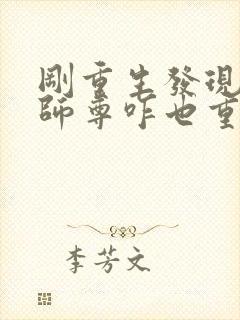 剛重生發現
師尊咋也重
李芳文